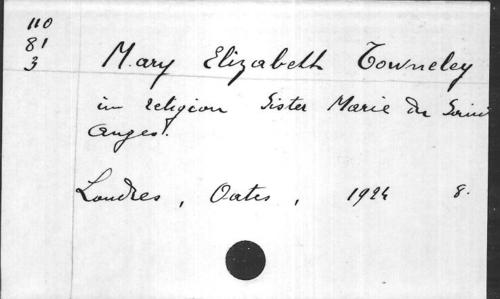 110
81
3
Mary Elizabeth Towneley
in religion Sister Marie des Saints
Anges.
Londres, Oates, 1924 8.